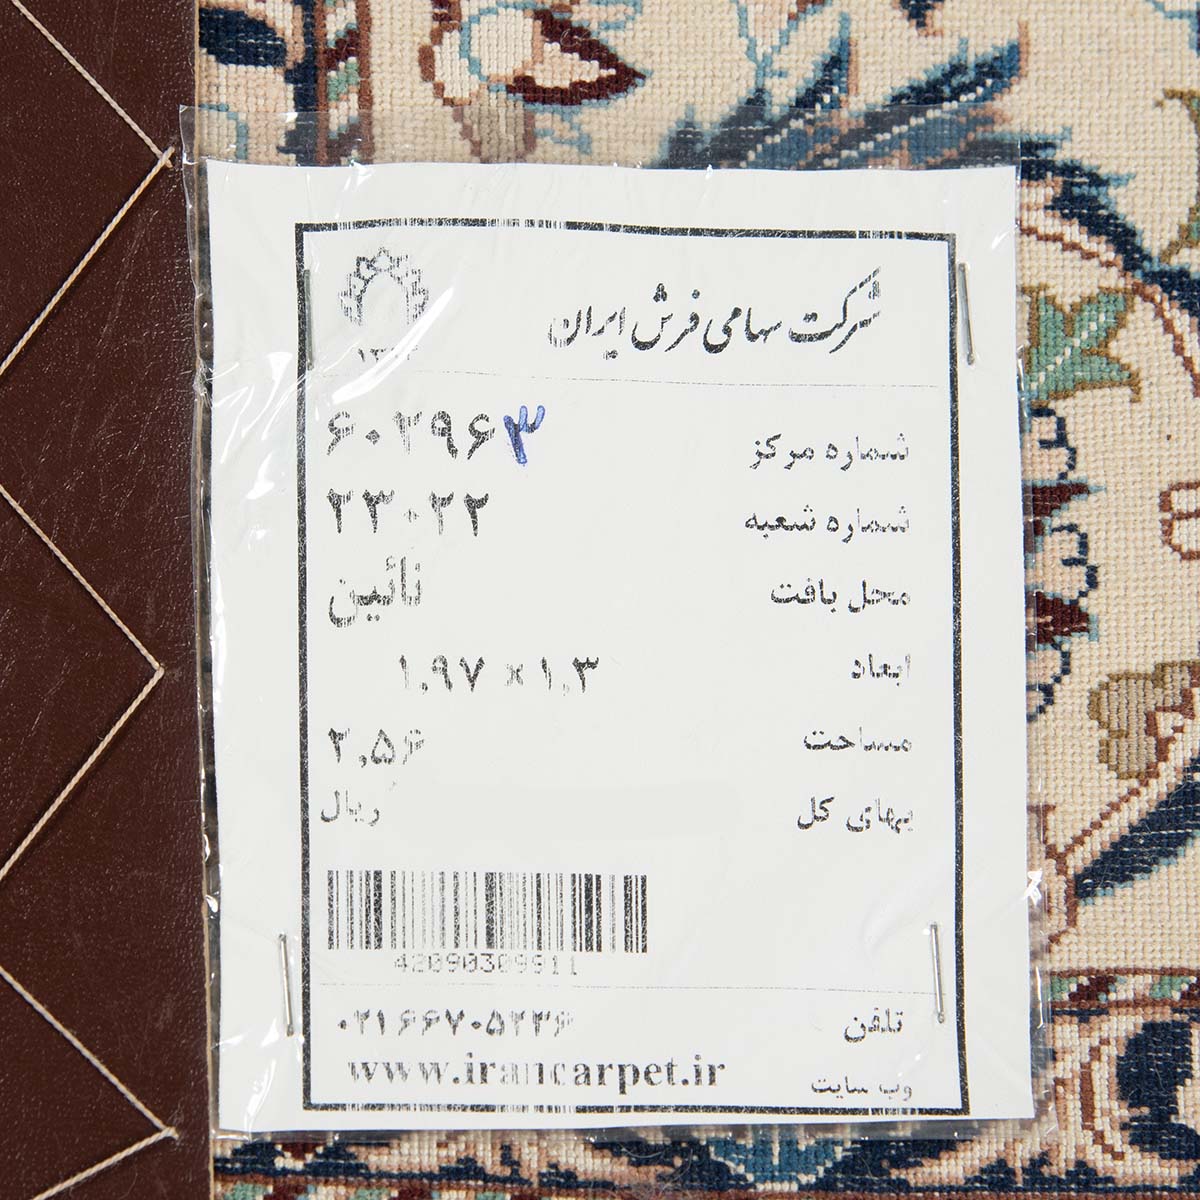 شرکت سهامی فرش ایران
شماره مرکز ۶۰۲۹۶۳
شماره شعبه ۲۳۰۲۲
محل بافت نائین
ابعاد ۱.۹۷ × ۱.۳
مساحت ۲.۵۶
بهای کل ریال
42090309911
تلفن ۰۲۱۶۶۷۰۵۲۲۶
وب سایت www.irancarpet.ir